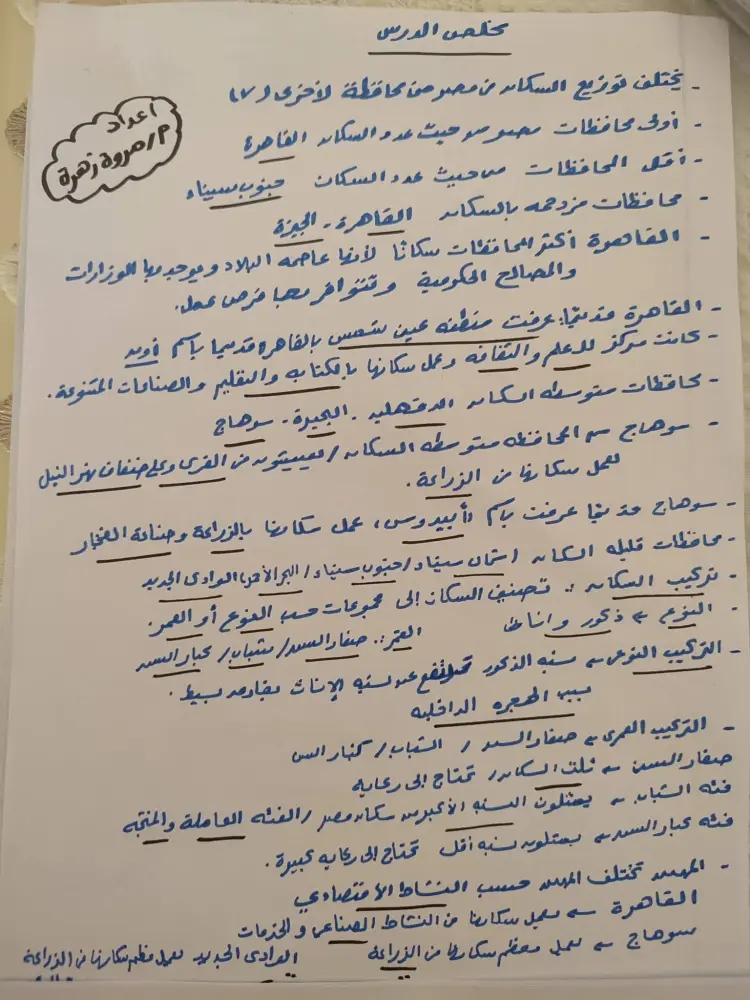 ملخص الدرس
اعداد
م/ مروة زهرة
- يختلف توزيع السكان في مصر من محافظة لأخرى
- أولى محافظات مصر من حيث عدد السكان القاهرة
- أقل المحافظات من حيث عدد السكان جنوب سيناء
- محافظات مزدحمه بالسكان القاهرة - الجيزة
- القاهرة أكثر المحافظات سكانا لأنها عاصمه البلاد ويوجد بها الوزارات
والمصالح الحكومية وتتوافر بها فرص عمل.
- القاهرة قديمًا: عرفت منطقه عين شمس بالقاهرة قديما باسم أون
- كانت مركز للعلم والثقافه وعمل سكانها بالكتابه والتعليم والصناعات المتنوعة.
- محافظات متوسطه السكان الدقهليه - البحيرة - سوهاج
- سوهاج من المحافظه متوسطه السكان / يعيشون في القرى وعلى ضفاف نهر النيل
يعمل سكانها في الزراعة.
- سوهاج قديمًا عرفت باسم (أبيدوس)، عمل سكانها بالزراعة وصناعة الفخار
- محافظات قليله السكان (شمال سيناء / جنوب سيناء / البحر الأحمر / الوادى الجديد
- تركيب السكان :: تصنيف السكان إلى مجموعات حسب النوع أو العمر.
- النوع ← ذكور واناث العمر:: صغار السن / شباب / كبار السن
- التركيب النوعى ← نسبه الذكور ترتفع عن نسبه الإناث بفارق بسيط.
بسبب الهجره الداخليه
- التركيب العمرى ← صغار السن / الشباب / كبار السن
صغار السن ← ثلث السكان / تحتاج إلى رعايه
فئه الشباب ← يمثلون النسبه الأكبر من سكان مصر / الفئه العاملة والمنتجه
فئه كبار السن ← يمثلون نسبه أقل تحتاج إلى رعايه كبيرة.
- المهن تختلف المهن حسب النشاط الأقتصادي
القاهرة ← يعمل سكانها في النشاط الصناعى والخدمات
سوهاج ← يعمل معظم سكانها في الزراعة الوادى الجديد يعمل معظم سكانها في الزراعة